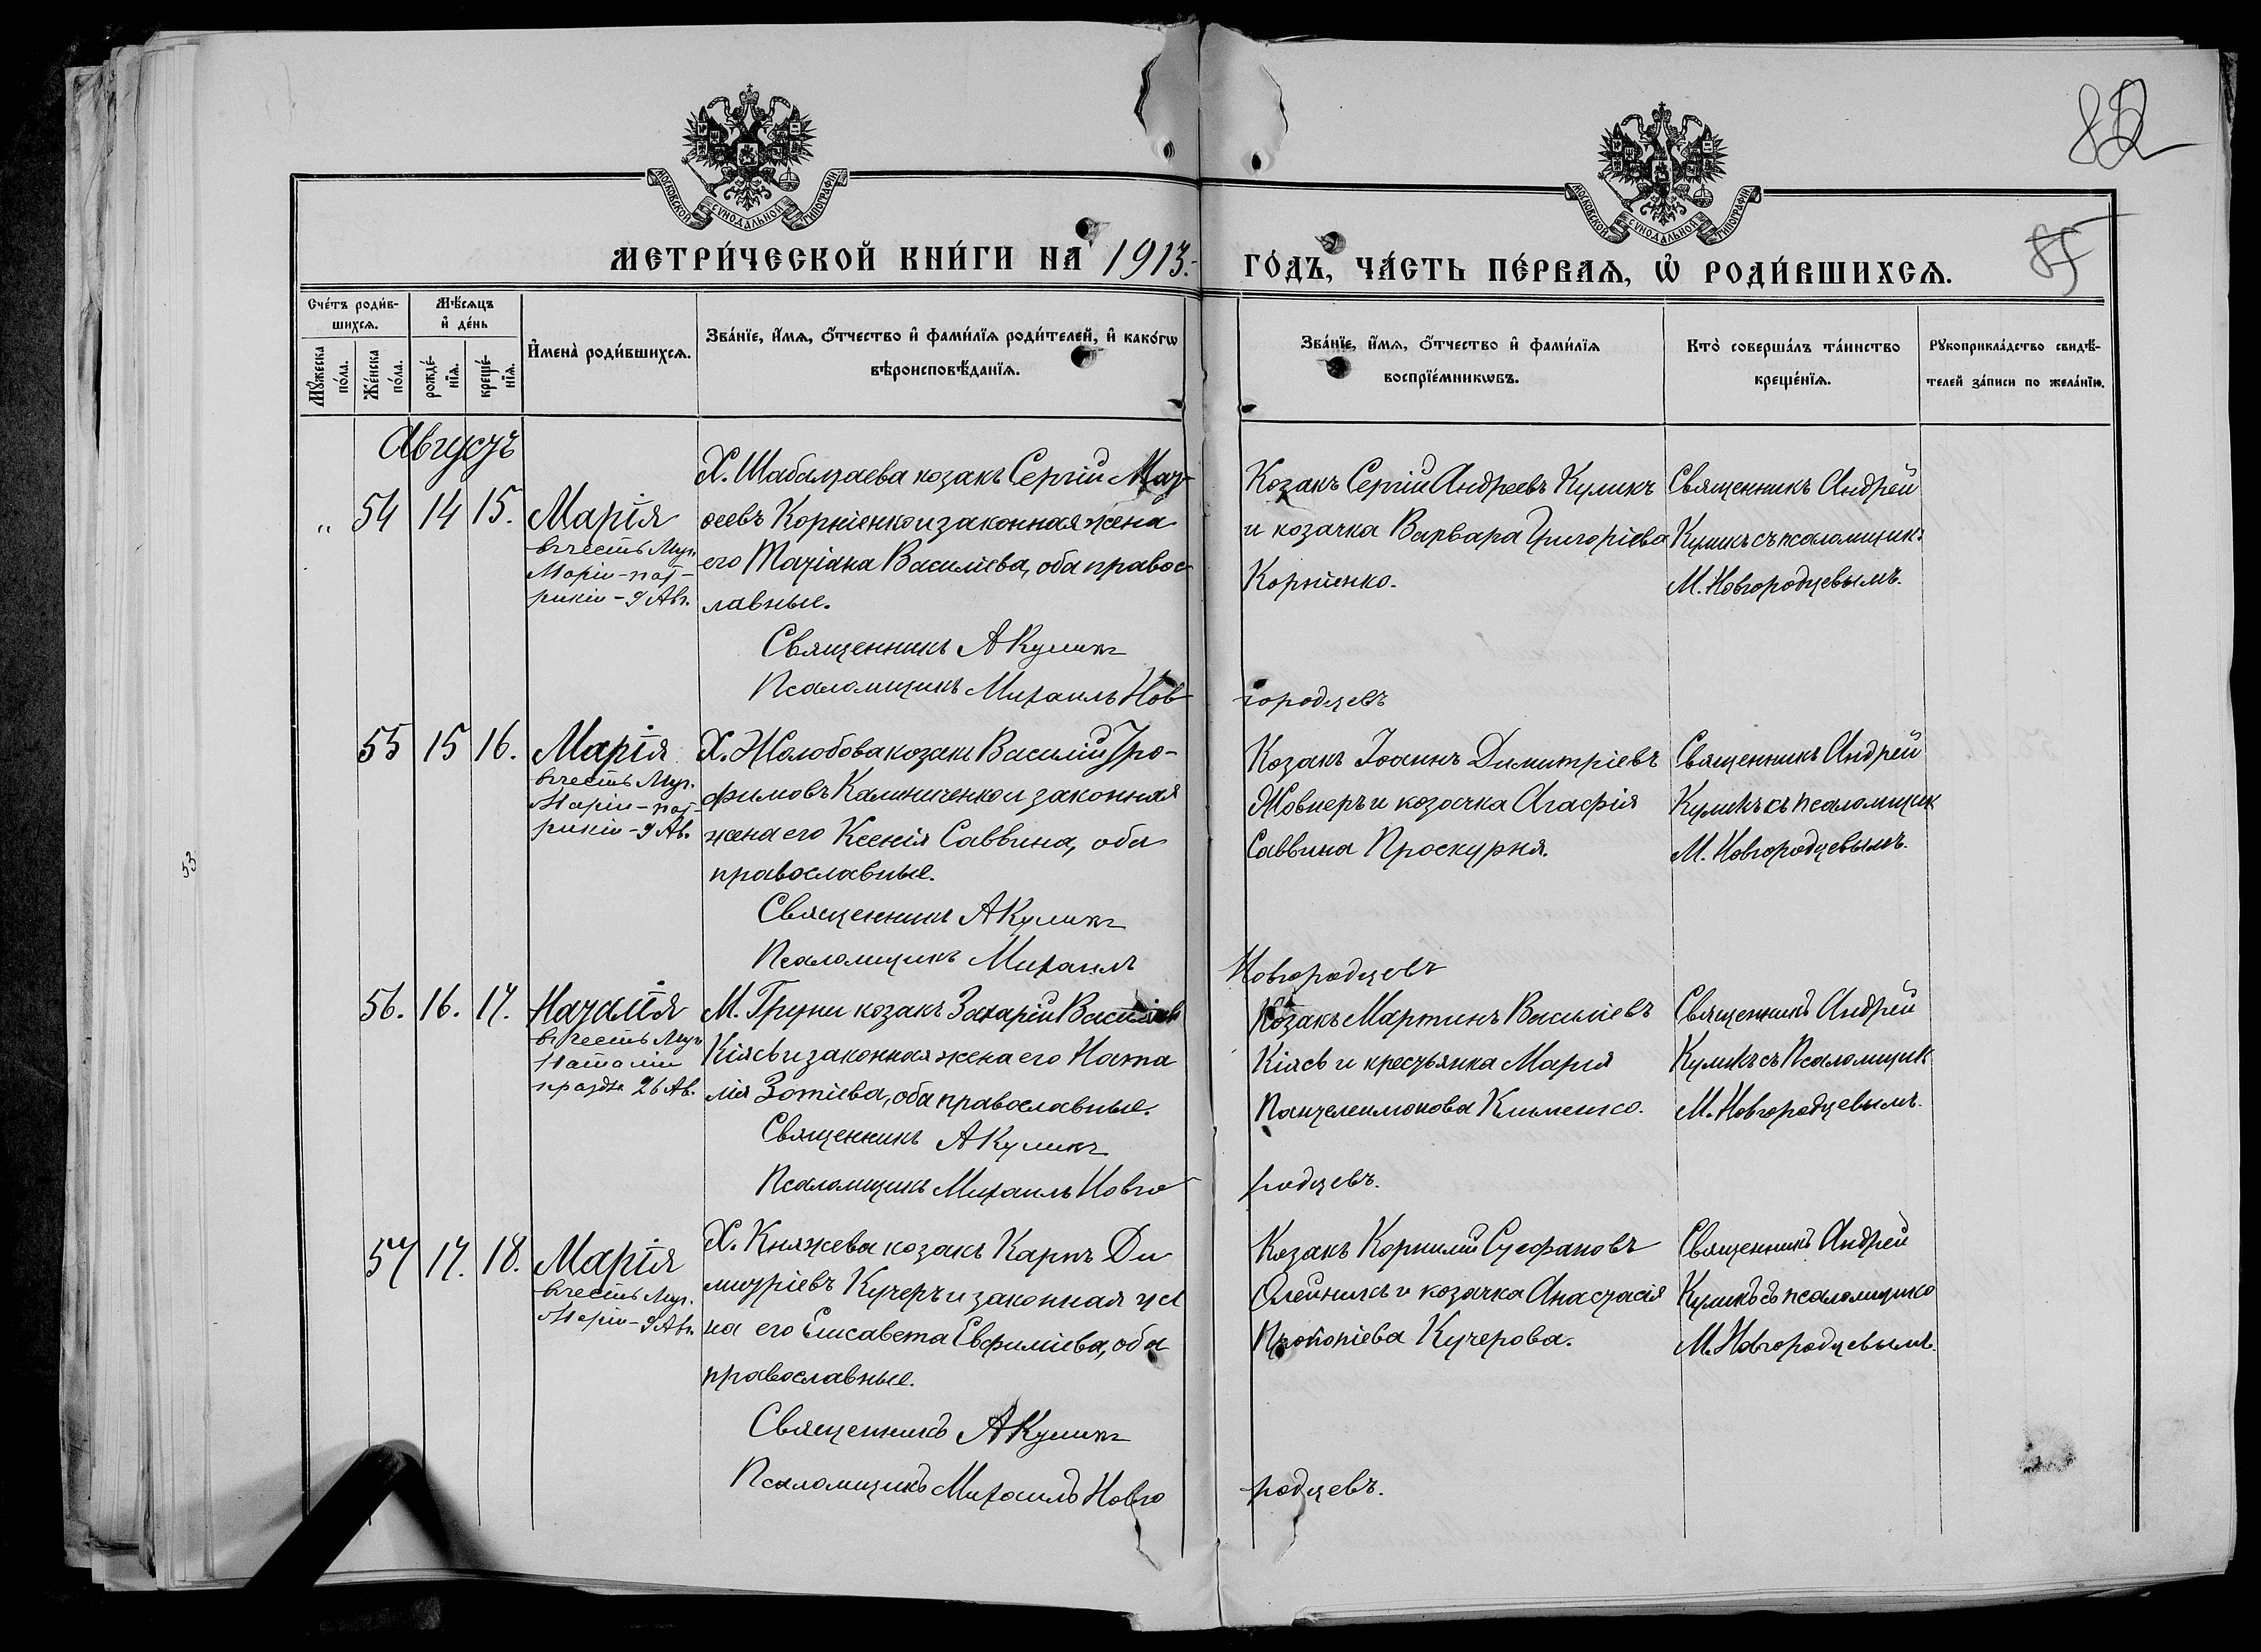 82
85
МОСКОВСКОЙ СѴНОДАЛЬНОЙ ТИПОГРАФІИ
МОСКОВСКОЙ СѴНОДАЛЬНОЙ ТИПОГРАФІИ
МЕТРИ́ЧЕСКОЙ КНИ́ГИ НА 1913.
ГО́ДЪ, ЧА́СТЬ ПЕ́РВАѦ, Ѡ҆ РОДИ́ВШИХСѦ.
Сче́тъ роди́в-
шихсѧ.
Мꙋ́жеска по́ла.
Же́нска по́ла.
Мѣ́сѧцъ
и҆ де́нь
рожде́-
нїѧ.
креще́-
нїѧ.
И҆мена̀ роди́вшихсѧ.
Зва́нїе, и҆́мѧ, ѻ҆́тчество и҆ фами́лїѧ роди́телей, и҆ како́гѡ
вѣроисповѣ́данїѧ.
Зва́нїе, и҆́мѧ, ѻ҆́тчество и҆ фами́лїѧ
воспрїе́мникѡвъ.
Кто̀ соверша́лъ та́инство
креще́нїѧ.
Рꙋкоприкла́дство свидѣ́-
телей за́писи по жела́нїю.
Августъ
„ 54 14 15. Марія
въ честь Муч.
Маріи-пат-
рикіи-9 Авг.
Х. Шабалтаева козакъ Сергій Мат-
ѳеевъ Корніенко и законная жена
его Татіана Василіева, оба правос-
лавные.
Священникъ А Куликъ
Псаломщикъ Михаилъ Нов-
городцевъ
Козакъ Сергій Андреевъ Куликъ
и козачка Варвара Григоріева
Корніенко.
Священникъ Андрей
Куликъ съ псаломщик.
М. Новгородцевымъ.
55 15 16. Марія
въ честь Муч.
Маріи-пат-
рикіи-9 Ав.
Х. Жолобова козакъ Василій Тро-
фимовъ Калиниченко и законная
жена его Ксенія Саввина, оба
православные.
Священникъ А Куликъ
Псаломщикъ Михаилъ
Новгородцевъ
Козакъ Іоаннъ Димитріевъ
Жовнеръ и козачка Агафія
Саввина Проскурня.
Священникъ Андрей
Куликъ съ псаломщик
М. Новгородцевымъ.
56. 16. 17. Наталія
въ честь Муч
Наталіи
празд. 26 Ав.
М. Груни козакъ Захарій Василіев
Кіясь и законная жена его Ната
лія Зотіева, оба православные.
Священникъ А Куликъ
Псаломщикъ Михаилъ Новго
родцевъ.
Козакъ Мартинъ Василіевъ
Кіясь и крестьянка Марія
Пантелеимонова Клименко.
Священникъ Андрей
Куликъ съ Псаломщик
М. Новгородцевымъ.
57 17. 18. Марія
въ честь Муч.
Маріи-9 Ав.
Х. Княжева козакъ Карпъ Ди
митріевъ Кучеръ и законная же
на его Елисавета Евфиміева, оба
православные.
Священникъ А Куликъ
Псаломщикъ Михаилъ Новго
родцевъ.
Козакъ Корнилій Стефановъ
Олейникъ и козачка Анастасія
Прокопіева Кучерова.
Священникъ Андрей
Куликъ съ псаломщико
М. Новгородцевымъ.
53